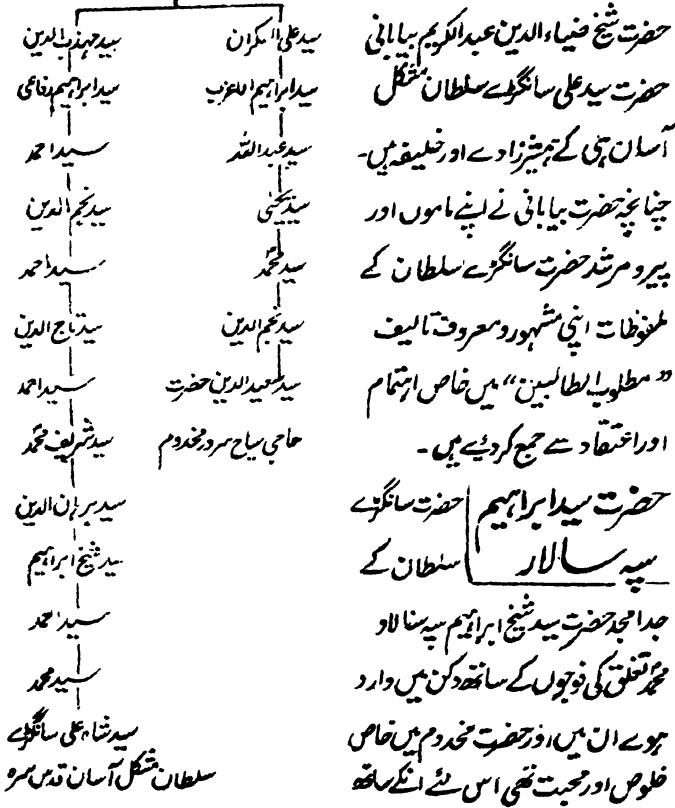 حضرت شیخ ضیاء الدین عبدالکریم بیابانی
حضرت سید علی سانگڑے سلطان مشکل
آسان ہی کے ہمشیرزادے اور خلیفہ ہیں۔
چنانچہ حضرت بیابانی نے اپنے ماموں اور
پیرو مرشد حضرت سانگڑے سلطان کے
ملفوظات اپنی مشہور و معروف تالیف
”مطلوب الطالبین“ میں خاص اہتمام
اور اعتقاد سے جمع کردئے ہیں۔
حضرت سید ابراہیم
سپہ سالار
حضرت سانگڑے
سلطان کے
جد امجد حضرت سید شیخ ابراہیم سپہ سالار
محمد تغلق کی فوجوں کے ساتھ دکن میں وارد
ہوے ان میں اور حضرت مخدوم میں خاص
خلوص اور محبت تھی اس لئے انکے ساتھ
سید علی السکران
سید ابراہیم الاعزب
سید عبداللہ
سید یحییٰ
سید محمد
سید نجم الدین
سید سعید الدین حضرت
حاجی سیاح سرور مخدوم
سید مہذب الدین
سید ابراہیم رفاعی
سید احمد
سید نجم الدین
سید احمد
سید تاج الدین
سید احمد
سید شریف محمد
سید برہان الدین
سید شیخ ابراہیم
سید احمد
سید محمد
سید شاہ علی سانگڑے
سلطان مشکل آسان قدس سرہ